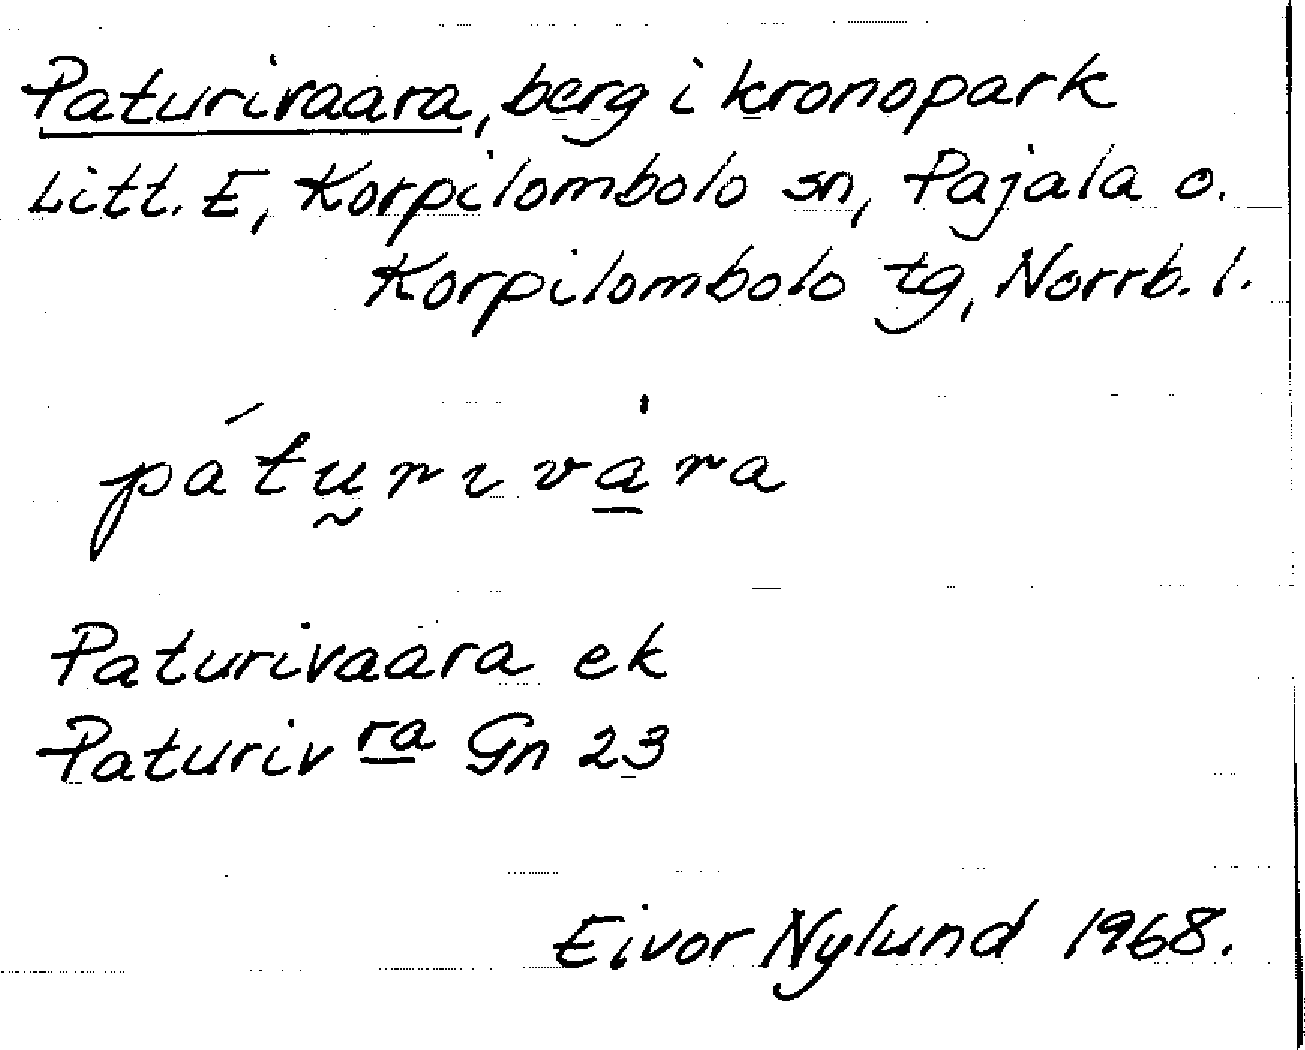 Paturivaara, berg i kronopark
Litt. E, Korpilombolo sn, Pajala o.
Korpilombolo tg, Norrb. l.
páturivàra
Paturivaara ek
Paturiv ra Gn 23
Eivor Nylund 1968.